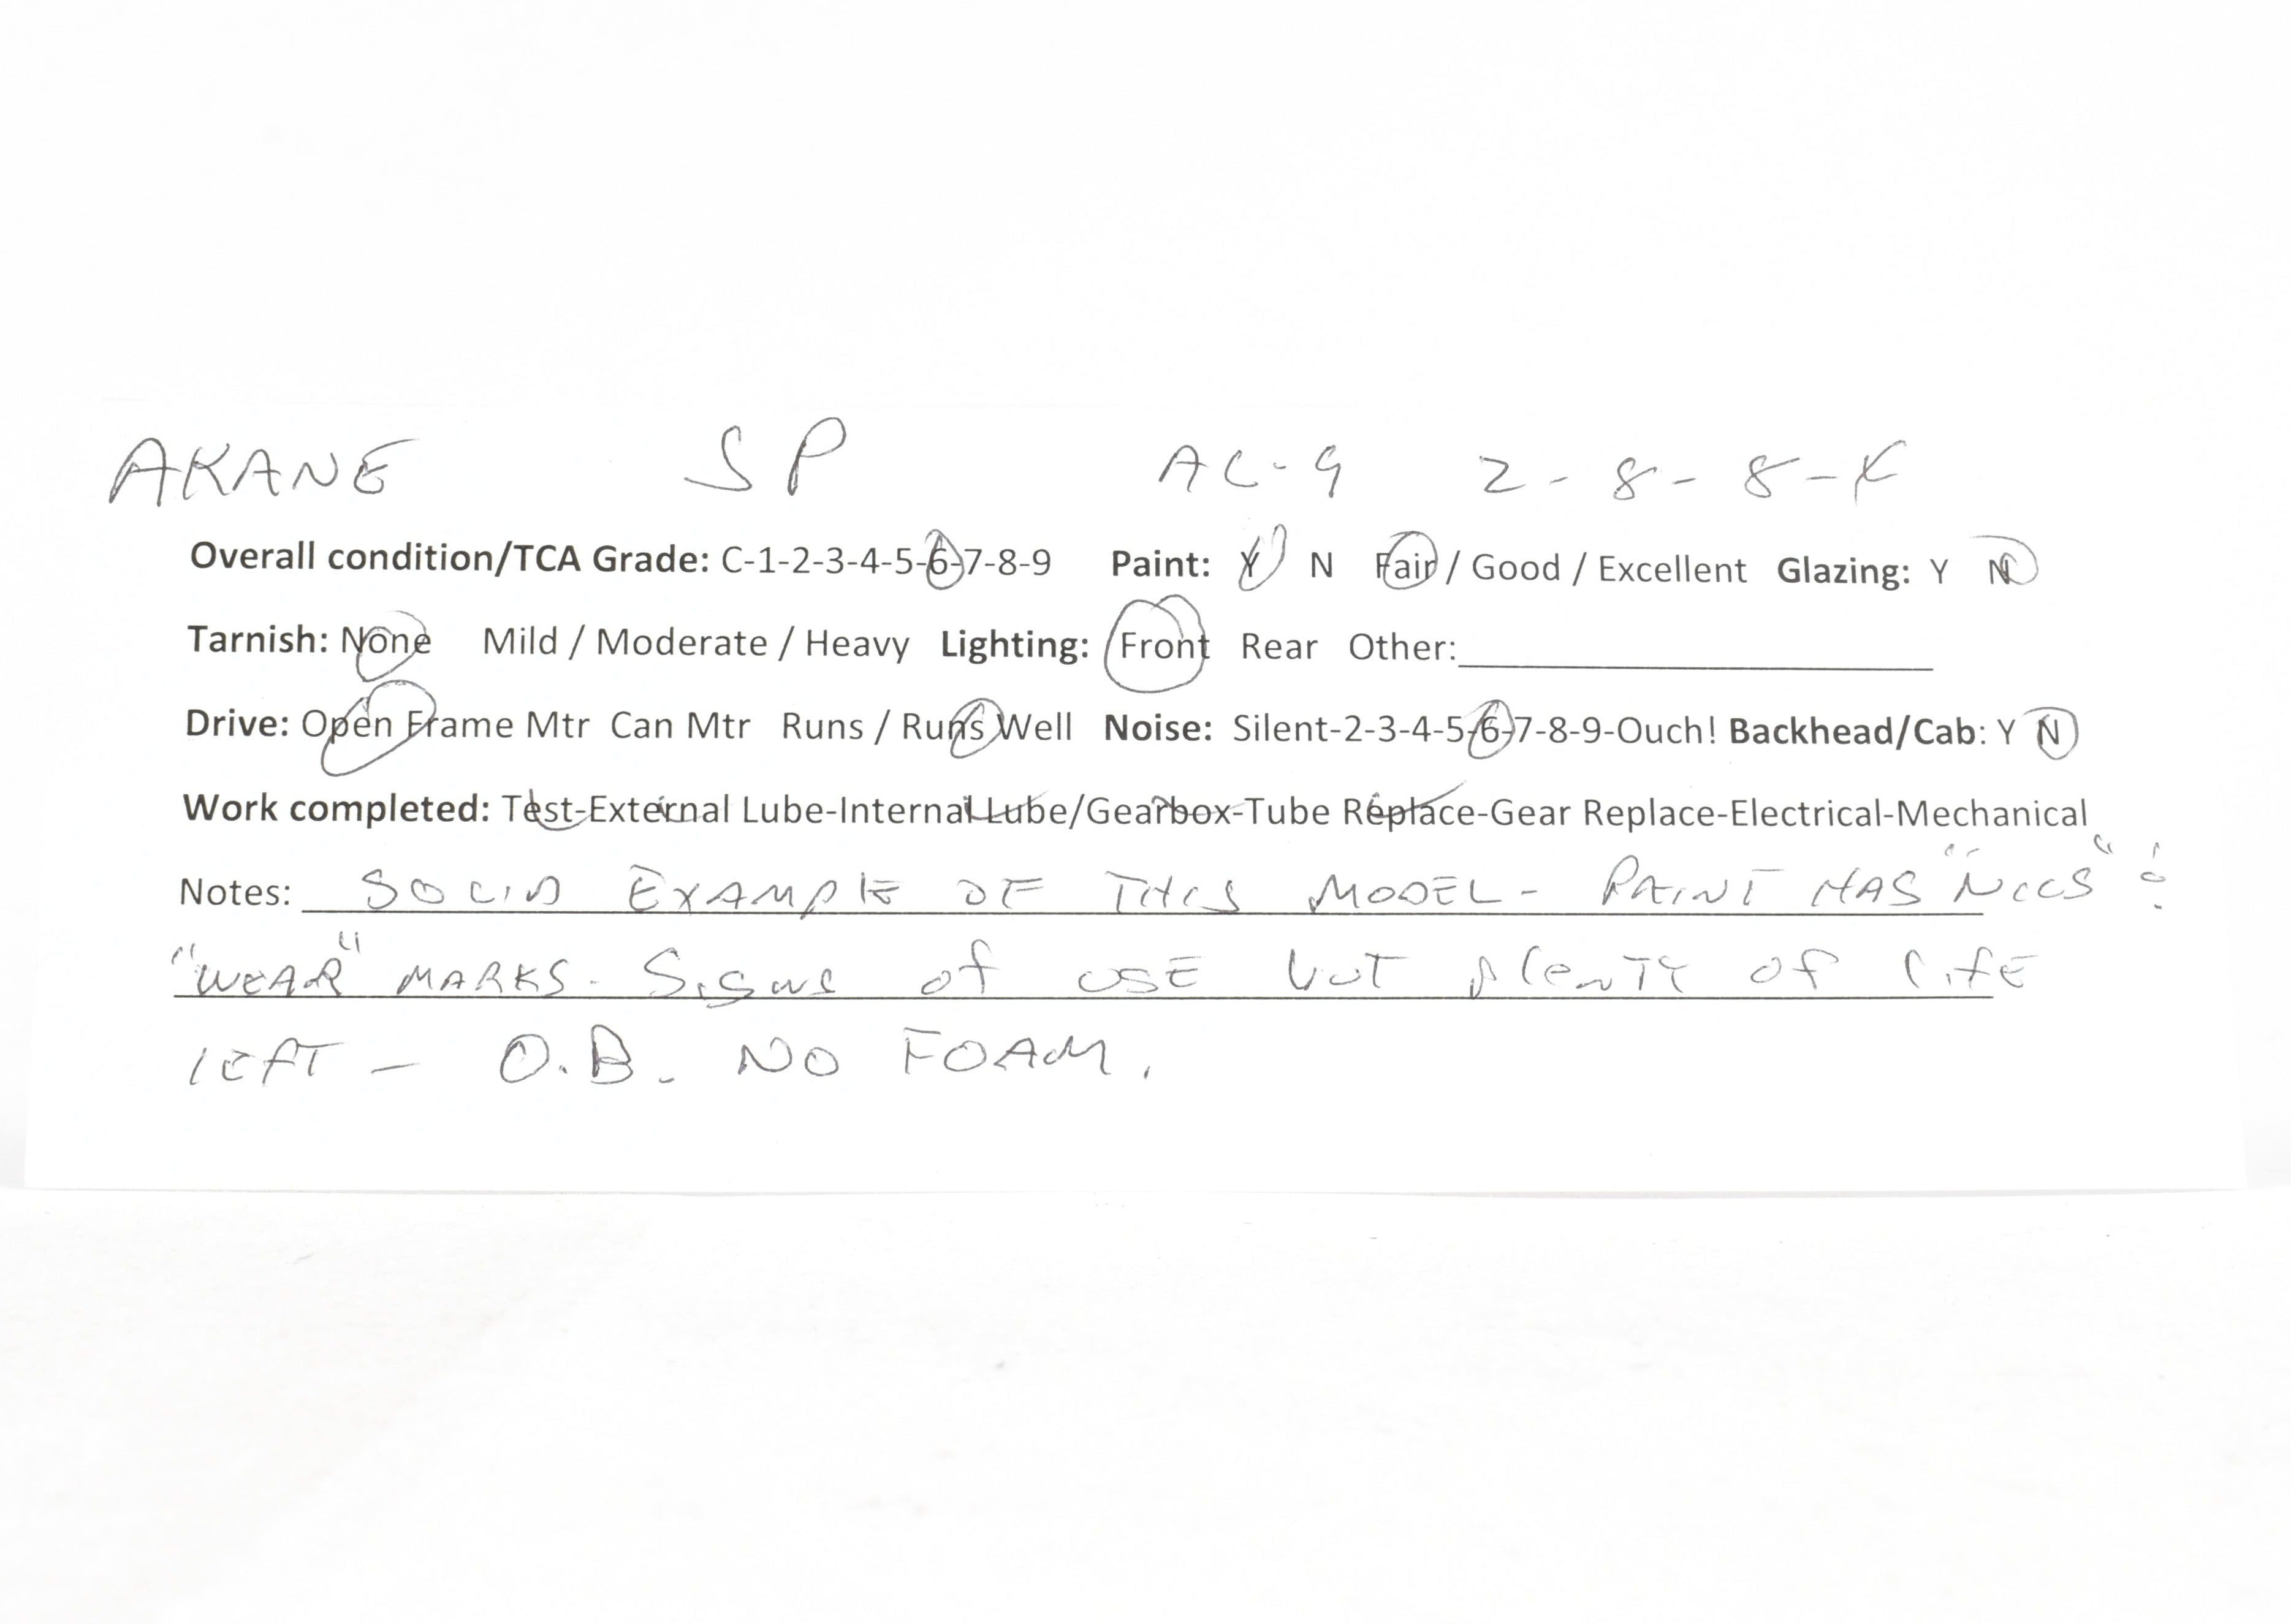 AKANE SP AC-9 2-8-8-4
Overall condition/TCA Grade: C-1-2-3-4-5-6-7-8-9 Paint: Y N Fair / Good / Excellent Glazing: Y N
Tarnish: None Mild / Moderate / Heavy Lighting: Front Rear Other:
Drive: Open Frame Mtr Can Mtr Runs / Runs Well Noise: Silent-2-3-4-5-6-7-8-9-Ouch! Backhead/Cab: Y N
Work completed: Test-External Lube-Internal Lube/Gearbox-Tube Replace-Gear Replace-Electrical-Mechanical
Notes: SOLID EXAMPLE OF THIS MODEL - PAINT HAS "NICS" &
"WEAR" MARKS. Signs of USE but plenTY of lifE
lEfT - O.B. NO FOAM.